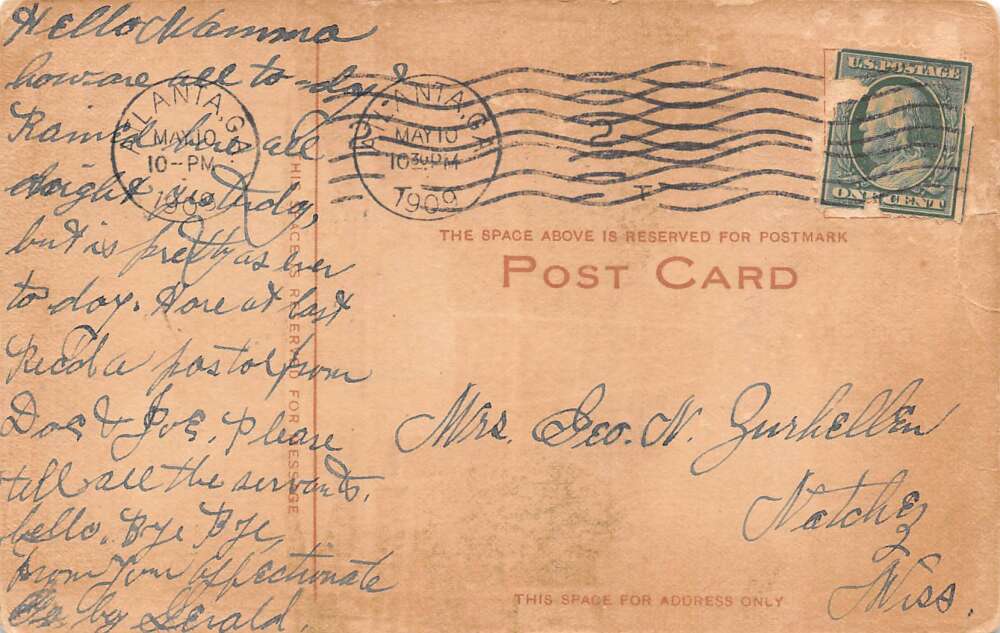 Hello Mamma
how are all to-day
Rained here all
night yesterday,
but is pretty as ever
to day. Have at last
Rec'd a postal from
Doc & Joe. Please
tell all the servants.
hello. Bye Bye,
From your affectionate
by Gerald.
ATLANTA, GA.
MAY 10
10-PM
1909
ATLANTA, GA
MAY 10
10 30 PM
1909
2
T
U.S. POSTAGE
ONE CENT
THE SPACE ABOVE IS RESERVED FOR POSTMARK
POST CARD
THIS SPACE IS RESERVED FOR MESSAGE
Mrs. Geo. N. Zurhellen
Natchez
Miss.
THIS SPACE FOR ADDRESS ONLY